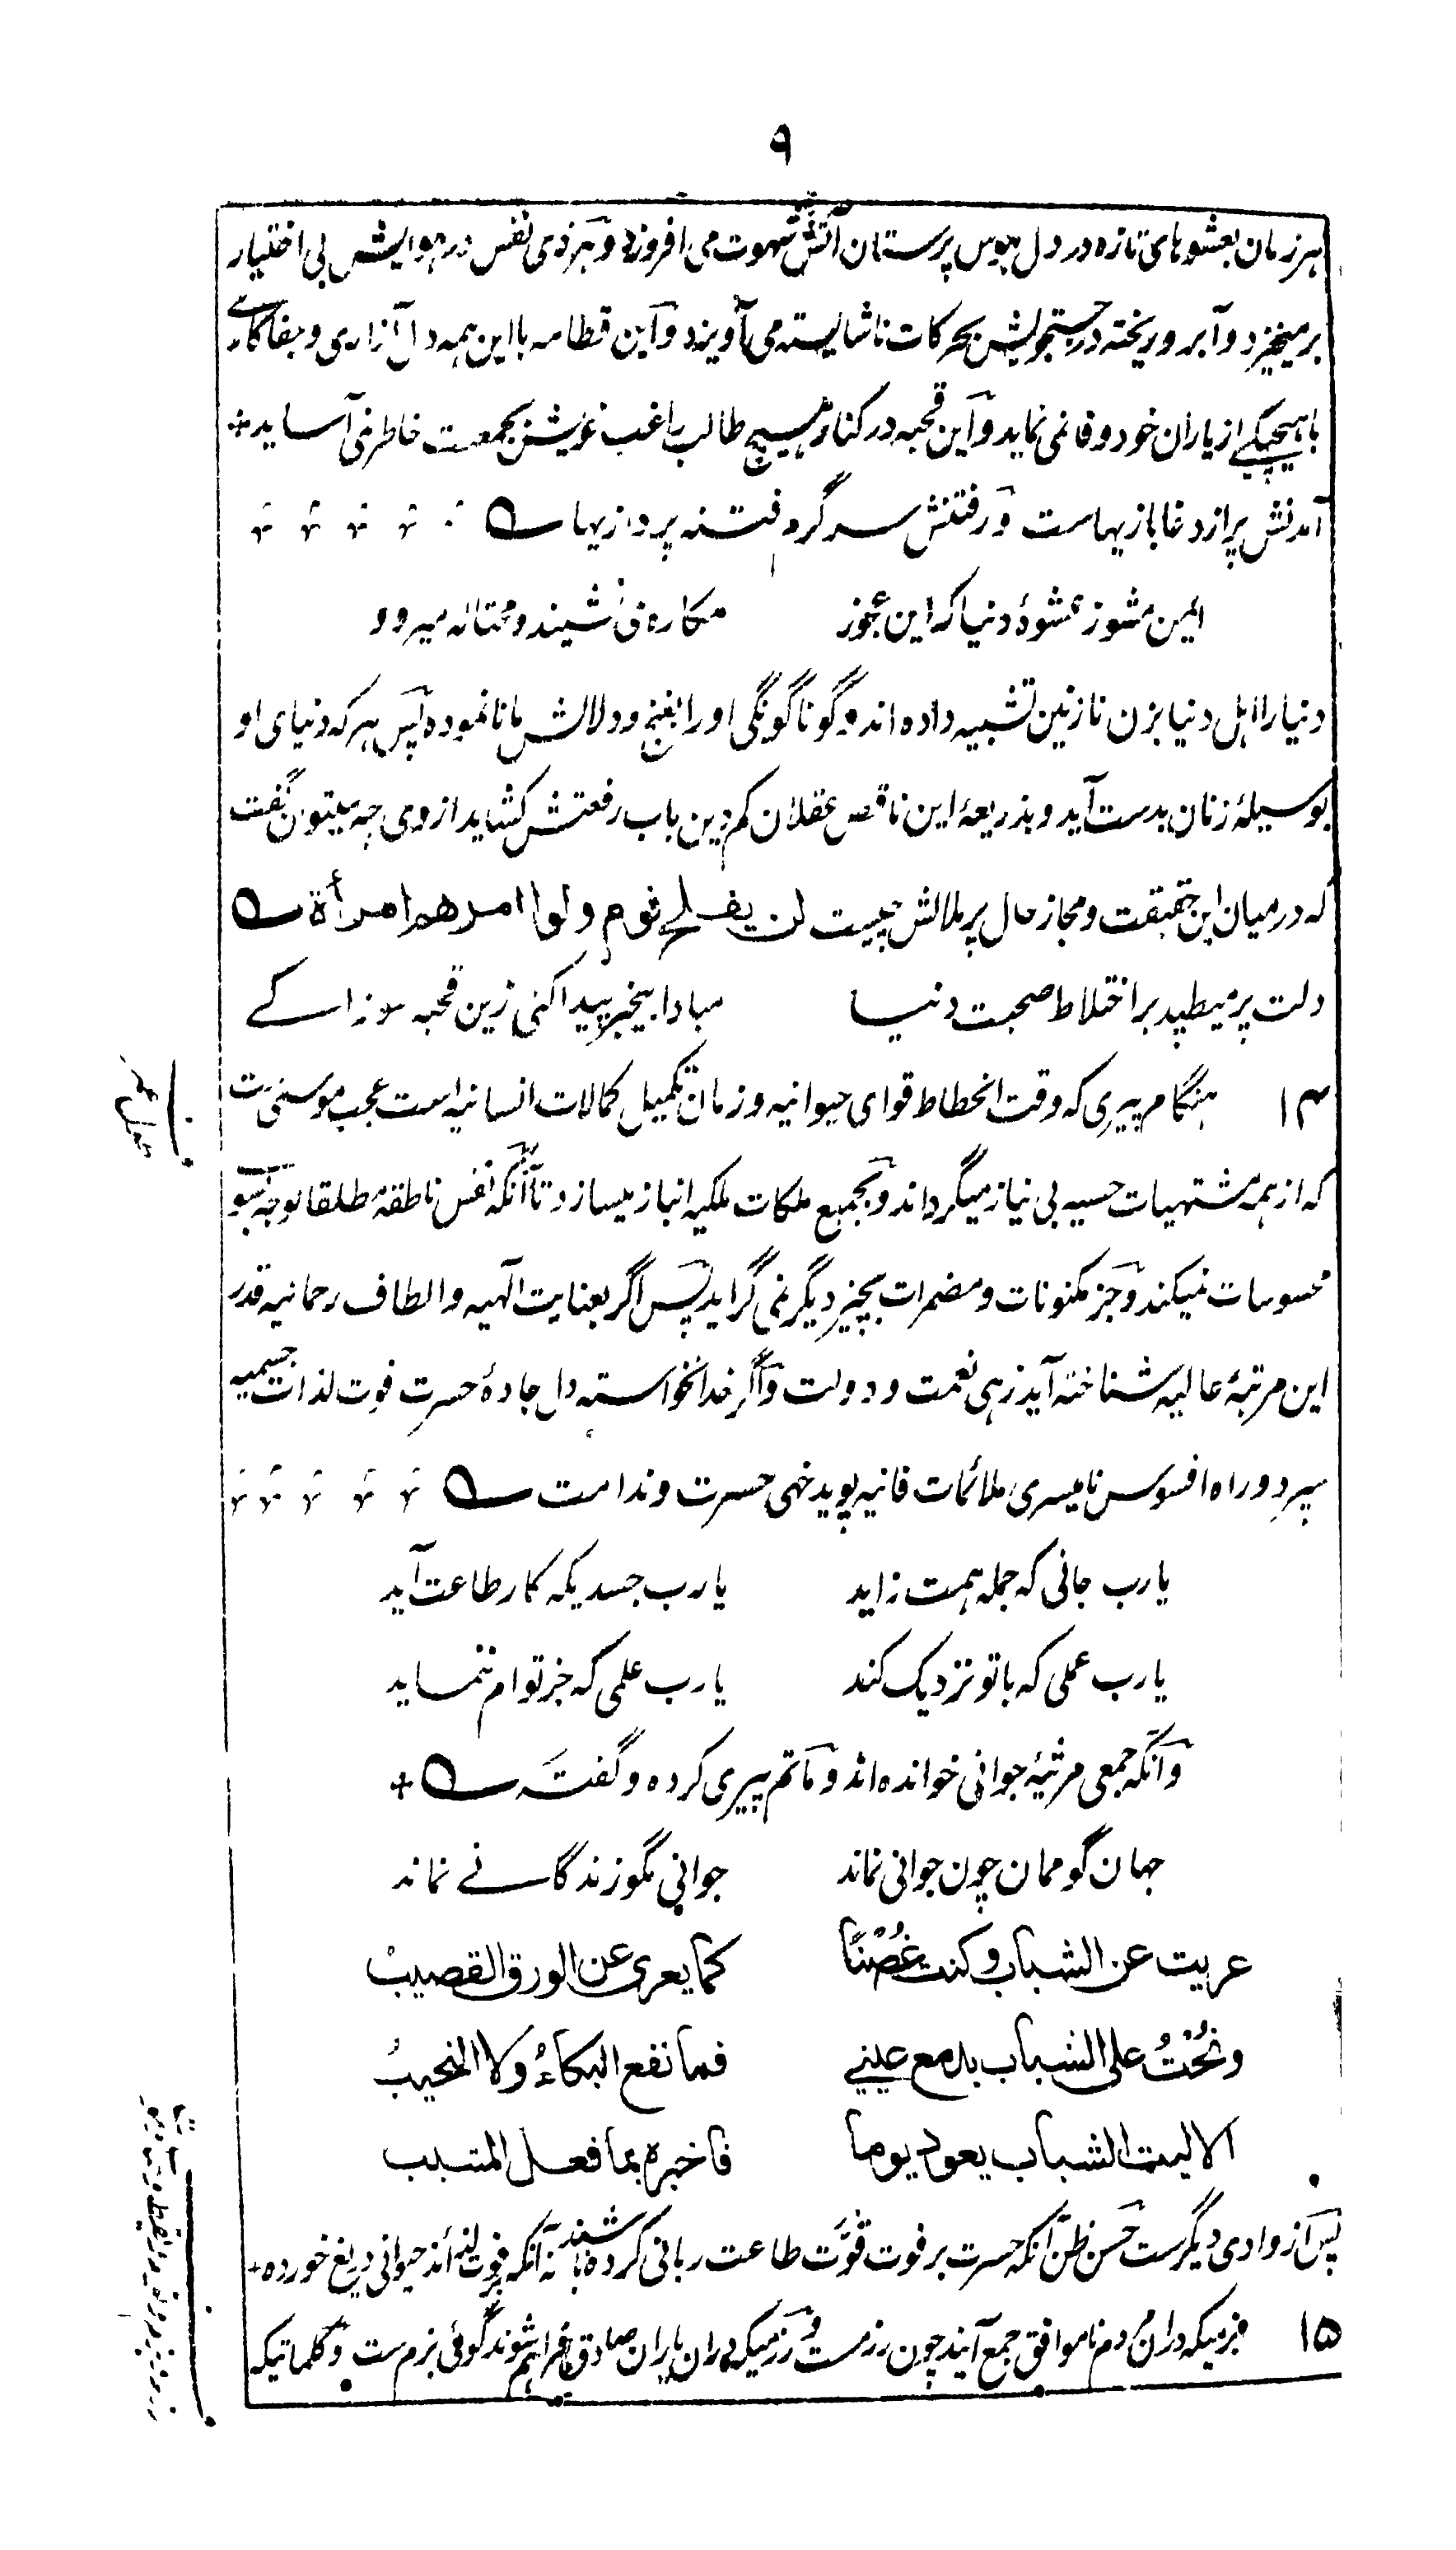 ۹
هر زمان بعشوهای تازه در دل هوس پرستان آتش شهوت می افروزد و هر ذی نفس در هوایش بی اختیار
برمیخیزد و آبرو ریخته در جستجویش بحرکات ناشایسته می آویزد و این قطامه با این همه دل آزاری و جفاکاری
با هیچیکی از یاران خود وفا نمی نماید و این قحبه در کنار هیچ طالب راغب خویش بجمعیت خاطر نمی آساید +
آمدنش پر از دغابازیهاست و رفتنش سرگرم فتنه پردازیها
ایمن مشو ز عشوهٔ دنیا که این عجوز
مکاره می نشیند و محتاله میرود
دنیا را اهل دنیا بزن نازنین تشبیه داده اند و گوناگونگی او را بغنج و دلالش مانا نموده پس هر که دنیای او
بوسیلهٔ زنان بدست آید و بذریعهٔ این ناقص عقلان کم دین باب رفعتش کشاید از وی چه میتوان گفت
که درمیان این حقیقت و مجاز حال پر ملالش چیست لن یفلح قوم ولوا امرهم امرأة
دلت پر میطپد بر اختلاط صحبت دنیا
مبادا بیخبر پیدا کنی زین قحبه سوزاکے
۱۴ هنگام پیری که وقت انحطاط قوای حیوانیه و زمان تکمیل کمالات انسانیه است عجب موسمی ست
که از همه مشتهیات حسیه بی نیاز میگرداند و بجمیع ملکات ملکیه انباز میسازد تا آنکه نفس ناطقه مطلقا توجه بسوی
محسوسات نمیکند و جز مکنونات و مضمرات بچیز دیگر نمی گراید پس اگر بعنایت الٰهیه و الطاف رحمانیه قدر
این مرتبهٔ عالیه شناخته آید زهی نعمت و دولت و اگر خدانخواسته دل جادهٔ حسرت فوت لذات جسمیه
سپرد و راه افسوس نامیسری ملائمات فانیه پوید خهی حسرت و ندامت
یارب جانی که جمله همت زاید
یارب جسدیکه کار طاعت آید
یارب عملی که با تو نزدیک کند
یارب علمی که جز توام ننماید
و آنکه جمعی مرثیهٔ جوانی خوانده اند و ماتم پیری کرده و گفته +
جهان گو ممان چون جوانی نماند
جوانی مگو زندگانے نماند
عریت عن الشباب وکنت غُصْنًا
کما یعری عن الورق القضیب
ونُحْتُ علی الشباب بدمع عینی
فما نفع البکاءُ ولا النحیبُ
الا لیت الشباب یعود یوما
فاخبره بما فعل المشیب
پس از وادی دیگرست حسن ظن آنکه حسرت بر فوت قُوَّت طاعت ربانی کرده باشند نه آنکه بفوت لذائذ حیوانی دریغ خورده +
۱۵ بزمیکه دران مردم ناموافق جمع آیند چون رزمست و رزمیکه دران یاران صادق فراهم شوند گوئی بزم ست و کلماتیکه